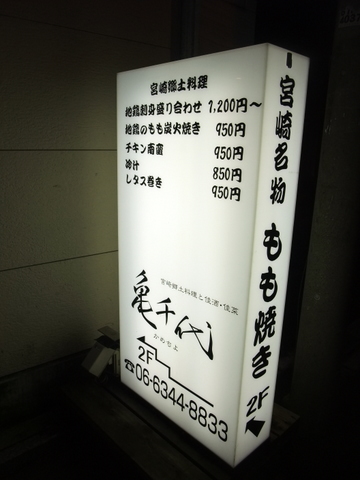 宮崎郷土料理
地鶏刺身盛り合わせ 1,200円～
地鶏のもも炭火焼き 950円
チキン南蛮 950円
冷汁 850円
レタス巻き 950円
宮崎郷土料理と佳酒・佳菜
亀千代
かめちよ
2F
☎06-6344-8833
宮崎名物 もも焼き 2F